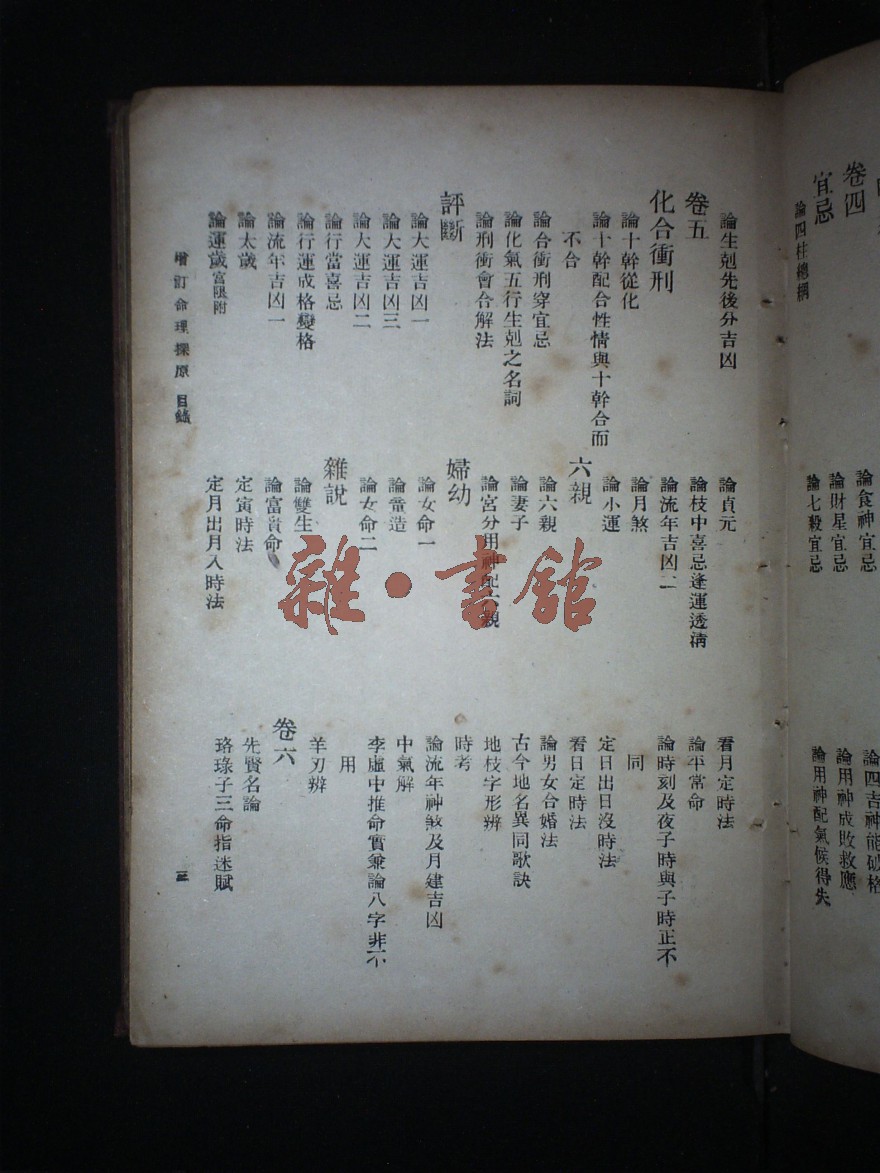 卷四
宜忌
論四柱總綱
論食神宜忌
論財星宜忌
論七殺宜忌
論四吉神能破格
論用神成敗救應
論用神配氣候得失
論生剋先後分吉凶
卷五
化合衝刑
論十幹從化
論十幹配合性情與十幹合而
不合
論合衝刑穿宜忌
論化氣五行生剋之名詞
論刑衝會合解法
評斷
論大運吉凶一
論大運吉凶三
論大運吉凶二
論行當喜忌
論行運成格變格
論流年吉凶一
論太歲
論運歲宮限附
論貞元
論枝中喜忌逢運透清
論流年吉凶二
論月煞
論小運
六親
論六親
論妻子
論宮分用神配六親
婦幼
論女命一
論童造
論女命二
雜說
論雙生
論富貴命
定寅時法
定月出月入時法
看月定時法
論平常命
論時刻及夜子時與子時正不
同
定日出日沒時法
看日定時法
論男女合婚法
古今地名異同歌訣
地枝字形辨
時考
論流年神煞及月建吉凶
中氣解
李虛中推命實兼論八字非不
用
羊刃辨
卷六
先賢名論
珞琭子三命指迷賦
增訂命理探原 目錄
三
雜·書館